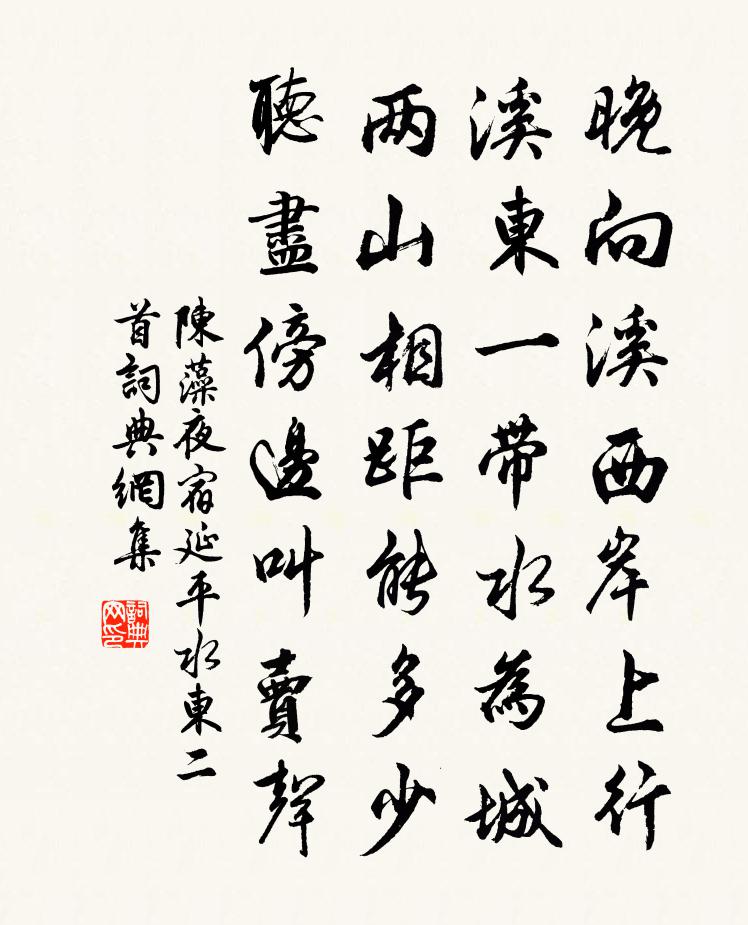 晚向溪西岸上行
溪東一帶水為城
两山相距能多少
聽盡傍邊叫賣聲
陳藻夜宿延平水東二
首詞典網集
詞典网印